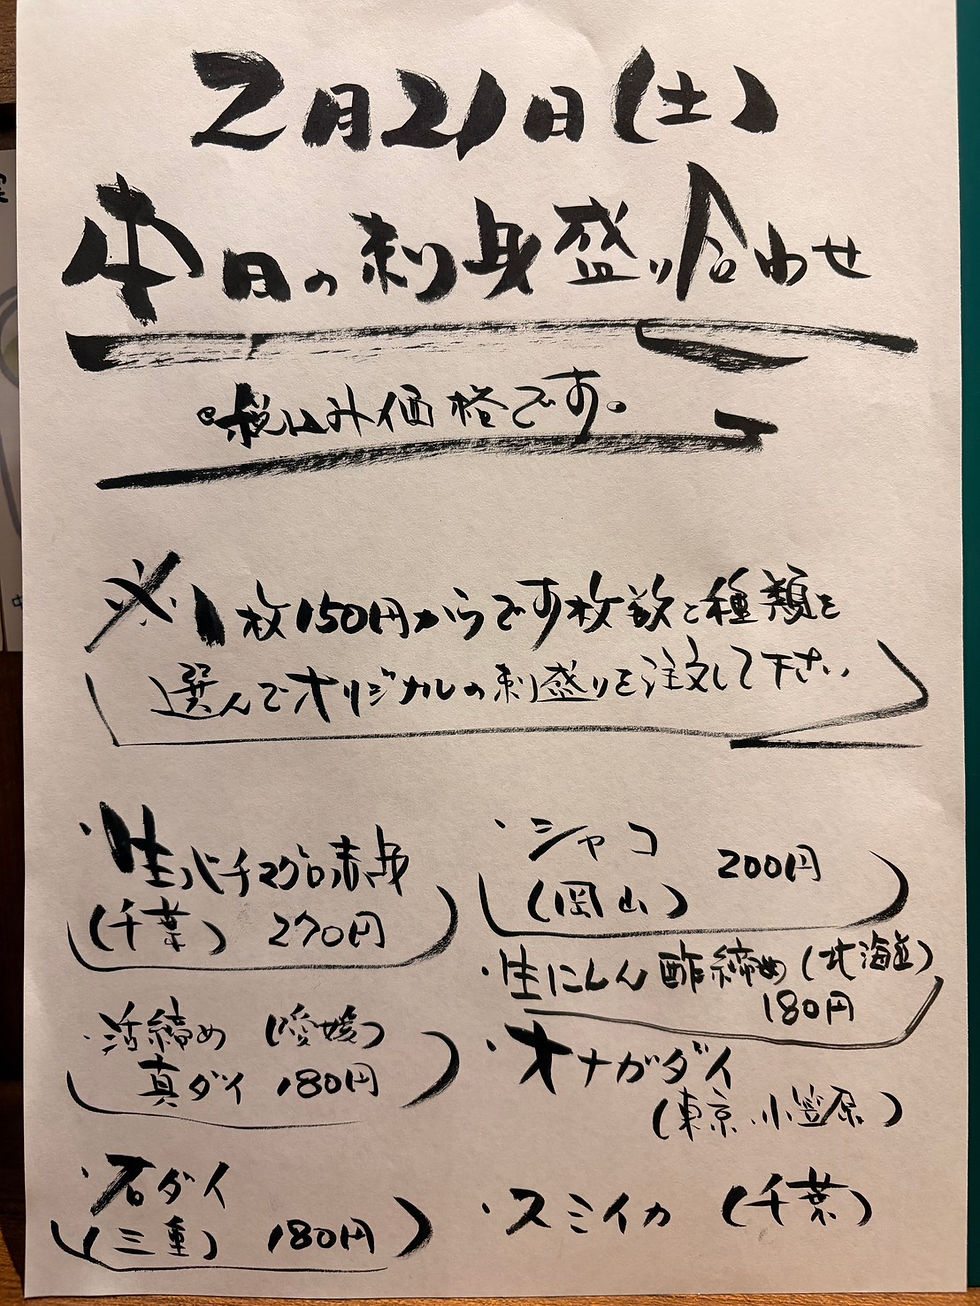 2月21日(土)
本日の刺身盛り合わせ
税込み価格です。
※1枚150円からです枚数と種類を
選んでオリジナルの刺盛りを注文して下さい
・生バチマグロ赤身
(千葉) 270円
・活締め (愛媛)
真ダイ 180円
・石ダイ
(三重) 180円
・シャコ
(岡山) 200円
・生にしん酢締め(北海道)
180円
・オナガダイ
(東京、小笠原)
・スミイカ (千葉)